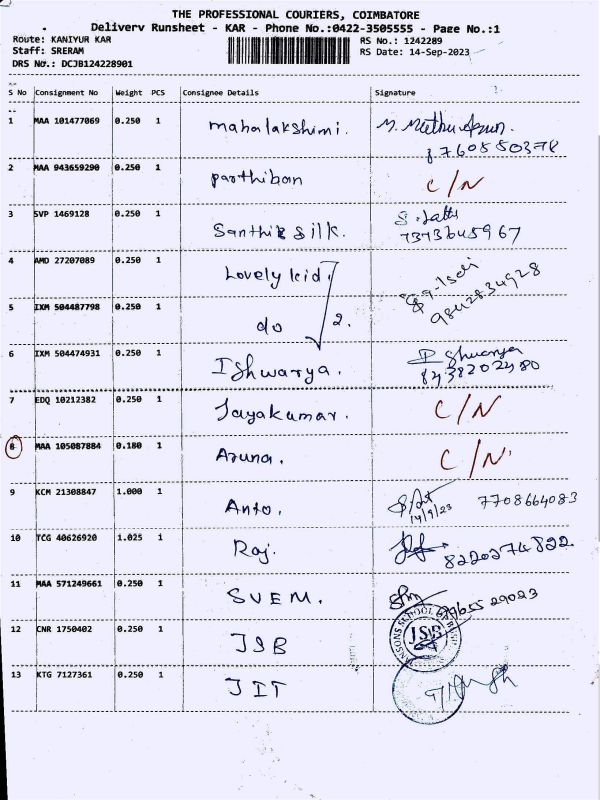 THE PROFESSIONAL COURIERS, COIMBATORE
Delivery Runsheet - KAR - Phone No.:0422-3505555 - Page No.:1
Route: KANIYUR KAR RS No.: 1242289
Staff: SRERAM RS Date: 14-Sep-2023
DRS No.: DCJB124228901
S No Consignment No Weight PCS Consignee Details Signature
1 MAA 101477069 0.250 1 mahalakshimi.
2 MAA 943659290 0.250 1 parthiban C/N
3 SVP 1469128 0.250 1 Santhi silk.
7373645967
4 AMD 27207089 0.250 1 Lovely kid.
9842834928
5 IXM 504487798 0.250 1 do 2.
6 IXM 504474931 0.250 1 Ishwarya.
7 EDQ 10212382 0.250 1 Jayakumar. C/N
8 MAA 105087884 0.180 1 Aruna. C/N.
9 KCM 21308847 1.000 1 Anto. 7708664083
14/9/23
10 TCG 40626920 1.025 1 Raj.
8220274822
11 MAA 571249661 0.250 1 SVEM.
12 CNR 1750402 0.250 1 JSB JSB
13 KTG 7127361 0.250 1 JIT